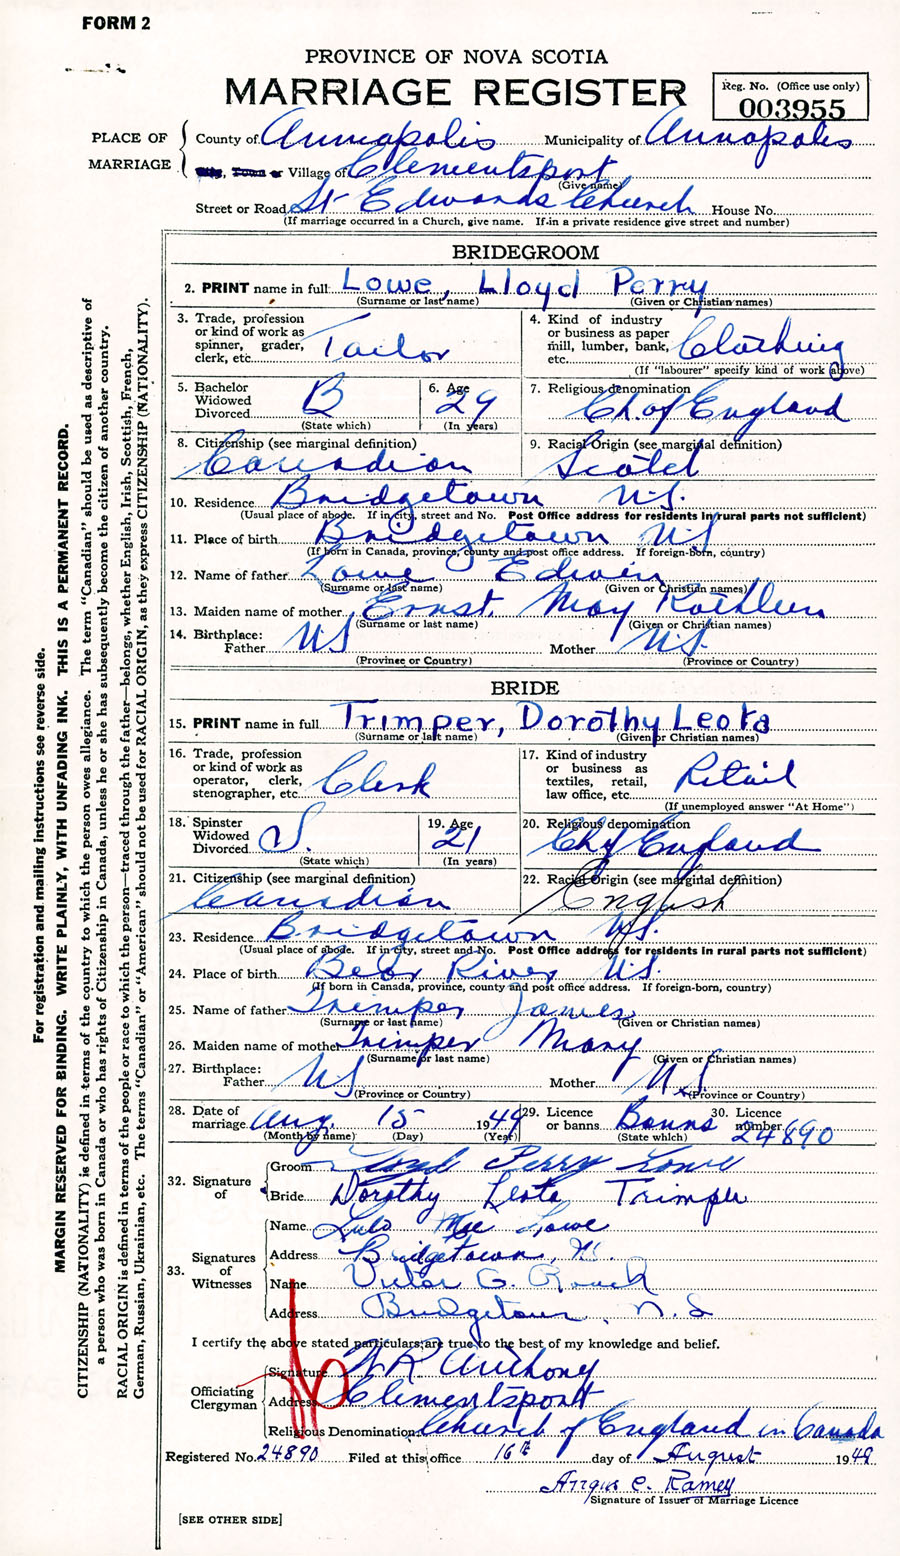 FORM 2
PROVINCE OF NOVA SCOTIA
MARRIAGE REGISTER
Reg. No. (Office use only)
003955
PLACE OF MARRIAGE
County of Annapolis Municipality of Annapolis
City, Town or Village of Clementsport
(Give name)
Street or Road St Edwards Church House No.
(If marriage occurred in a Church, give name. If in a private residence give street and number)
BRIDEGROOM
2. PRINT name in full Lowe, Lloyd Perry
(Surname or last name) (Given or Christian names)
3. Trade, profession or kind of work as spinner, grader, clerk, etc. Tailor
4. Kind of industry or business as paper mill, lumber, bank, etc. Clothing
(If "labourer" specify kind of work above)
5. Bachelor Widowed Divorced B (State which)
6. Age 29 (In years)
7. Religious denomination Ch. of England
8. Citizenship (see marginal definition) Canadian
9. Racial Origin (see marginal definition) Scotch
10. Residence Bridgetown N.S.
(Usual place of abode. If in city, street and No. Post Office address for residents in rural parts not sufficient)
11. Place of birth Bridgetown NS
(If born in Canada, province, county and post office address. If foreign-born, country)
12. Name of father Lowe Edwin
(Surname or last name) (Given or Christian names)
13. Maiden name of mother Ernst May Kathleen
(Surname or last name) (Given or Christian names)
14. Birthplace: Father NS Mother N.S.
(Province or Country) (Province or Country)
BRIDE
15. PRINT name in full Trimper, Dorothy Leota
(Surname or last name) (Given or Christian names)
16. Trade, profession or kind of work as operator, clerk, stenographer, etc. Clerk
17. Kind of industry or business as textiles, retail, law office, etc. Retail
(If unemployed answer "At Home")
18. Spinster Widowed Divorced S. (State which)
19. Age 21 (In years)
20. Religious denomination Ch of England
21. Citizenship (see marginal definition) Canadian
22. Racial Origin (see marginal definition) English
23. Residence Bridgetown N.S.
(Usual place of abode. If in city, street and No. Post Office address for residents in rural parts not sufficient)
24. Place of birth Bear River N.S.
(If born in Canada, province, county and post office address. If foreign-born, country)
25. Name of father Trimper James
(Surname or last name) (Given or Christian names)
26. Maiden name of mother Trimper Mary
(Surname or last name) (Given or Christian names)
27. Birthplace: Father NS Mother N.S.
(Province or Country) (Province or Country)
28. Date of marriage Aug. 15 1949
(Month by name) (Day) (Year)
29. Licence or banns Banns (State which)
30. Licence number 24890
32. Signature of
Groom Lloyd Perry Lowe
Bride Dorothy Leota Trimper
33. Signatures of Witnesses
Name Lula Mae Lowe
Address Bridgetown, N.S.
Name Victor G. Roach
Address Bridgetown, N.S
I certify the above stated particulars are true to the best of my knowledge and belief.
Officiating Clergyman
Signature W R Anthony
Address Clementsport
Religious Denomination Church of England in Canada
Registered No. 24890 Filed at this office 16th day of August 1949
Angus C. Ramey
Signature of Issuer of Marriage Licence
[SEE OTHER SIDE]
For registration and mailing instructions see reverse side.
MARGIN RESERVED FOR BINDING. WRITE PLAINLY, WITH UNFADING INK. THIS IS A PERMANENT RECORD.
CITIZENSHIP (NATIONALITY) is defined in terms of the country to which the person owes allegiance. The term "Canadian" should be used as descriptive of
a person who was born in Canada or who has rights of Citizenship in Canada, unless he or she has subsequently become the citizen of another country.
RACIAL ORIGIN is defined in terms of the people or race to which the person—traced through the father—belongs, whether English, Irish, Scottish, French,
German, Russian, Ukrainian, etc. The terms "Canadian" or "American" should not be used for RACIAL ORIGIN, as they express CITIZENSHIP (NATIONALITY).